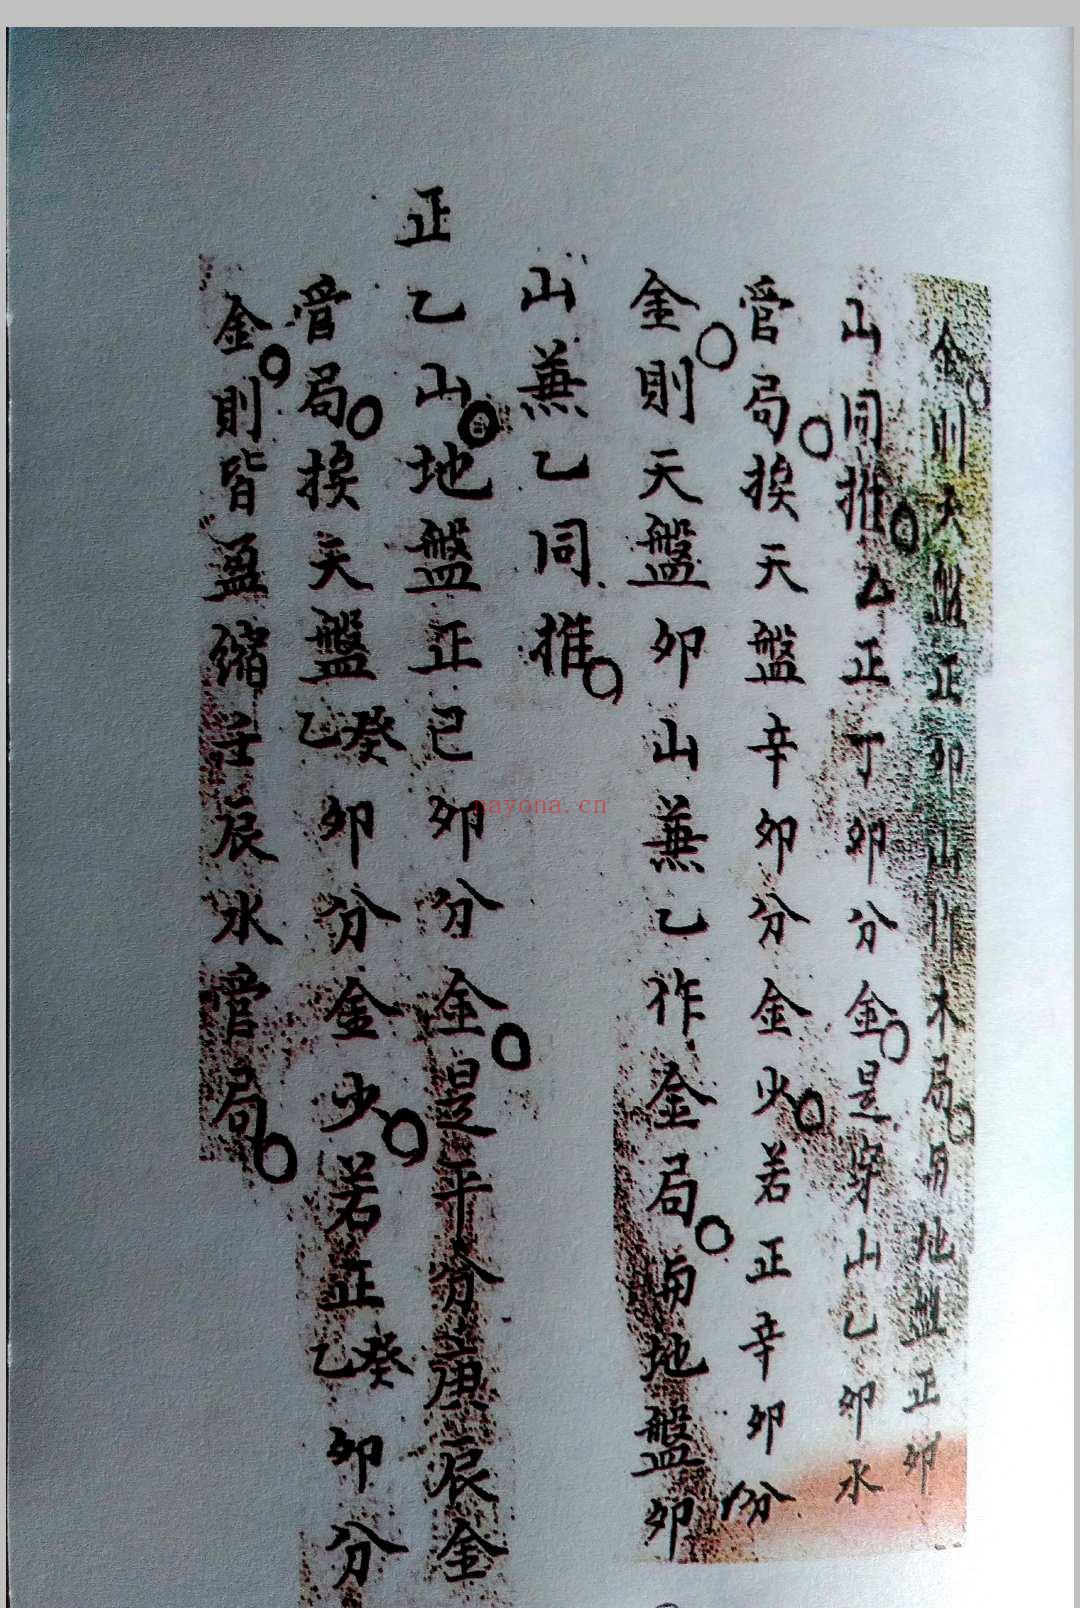 金則天盤正卯山作木局與地盤正卯
山同推乙正丁卯分金是穿山乙卯水
管局挨天盤辛卯分金少若正辛卯分
金則天盤卯山兼乙作金局與地盤卯
山兼乙同推
正乙山地盤正己卯分金是平分庚辰金
管局挨天盤乙癸卯分金少若正乙癸卯分
金則皆盈縮壬辰水管局
nayona.cn